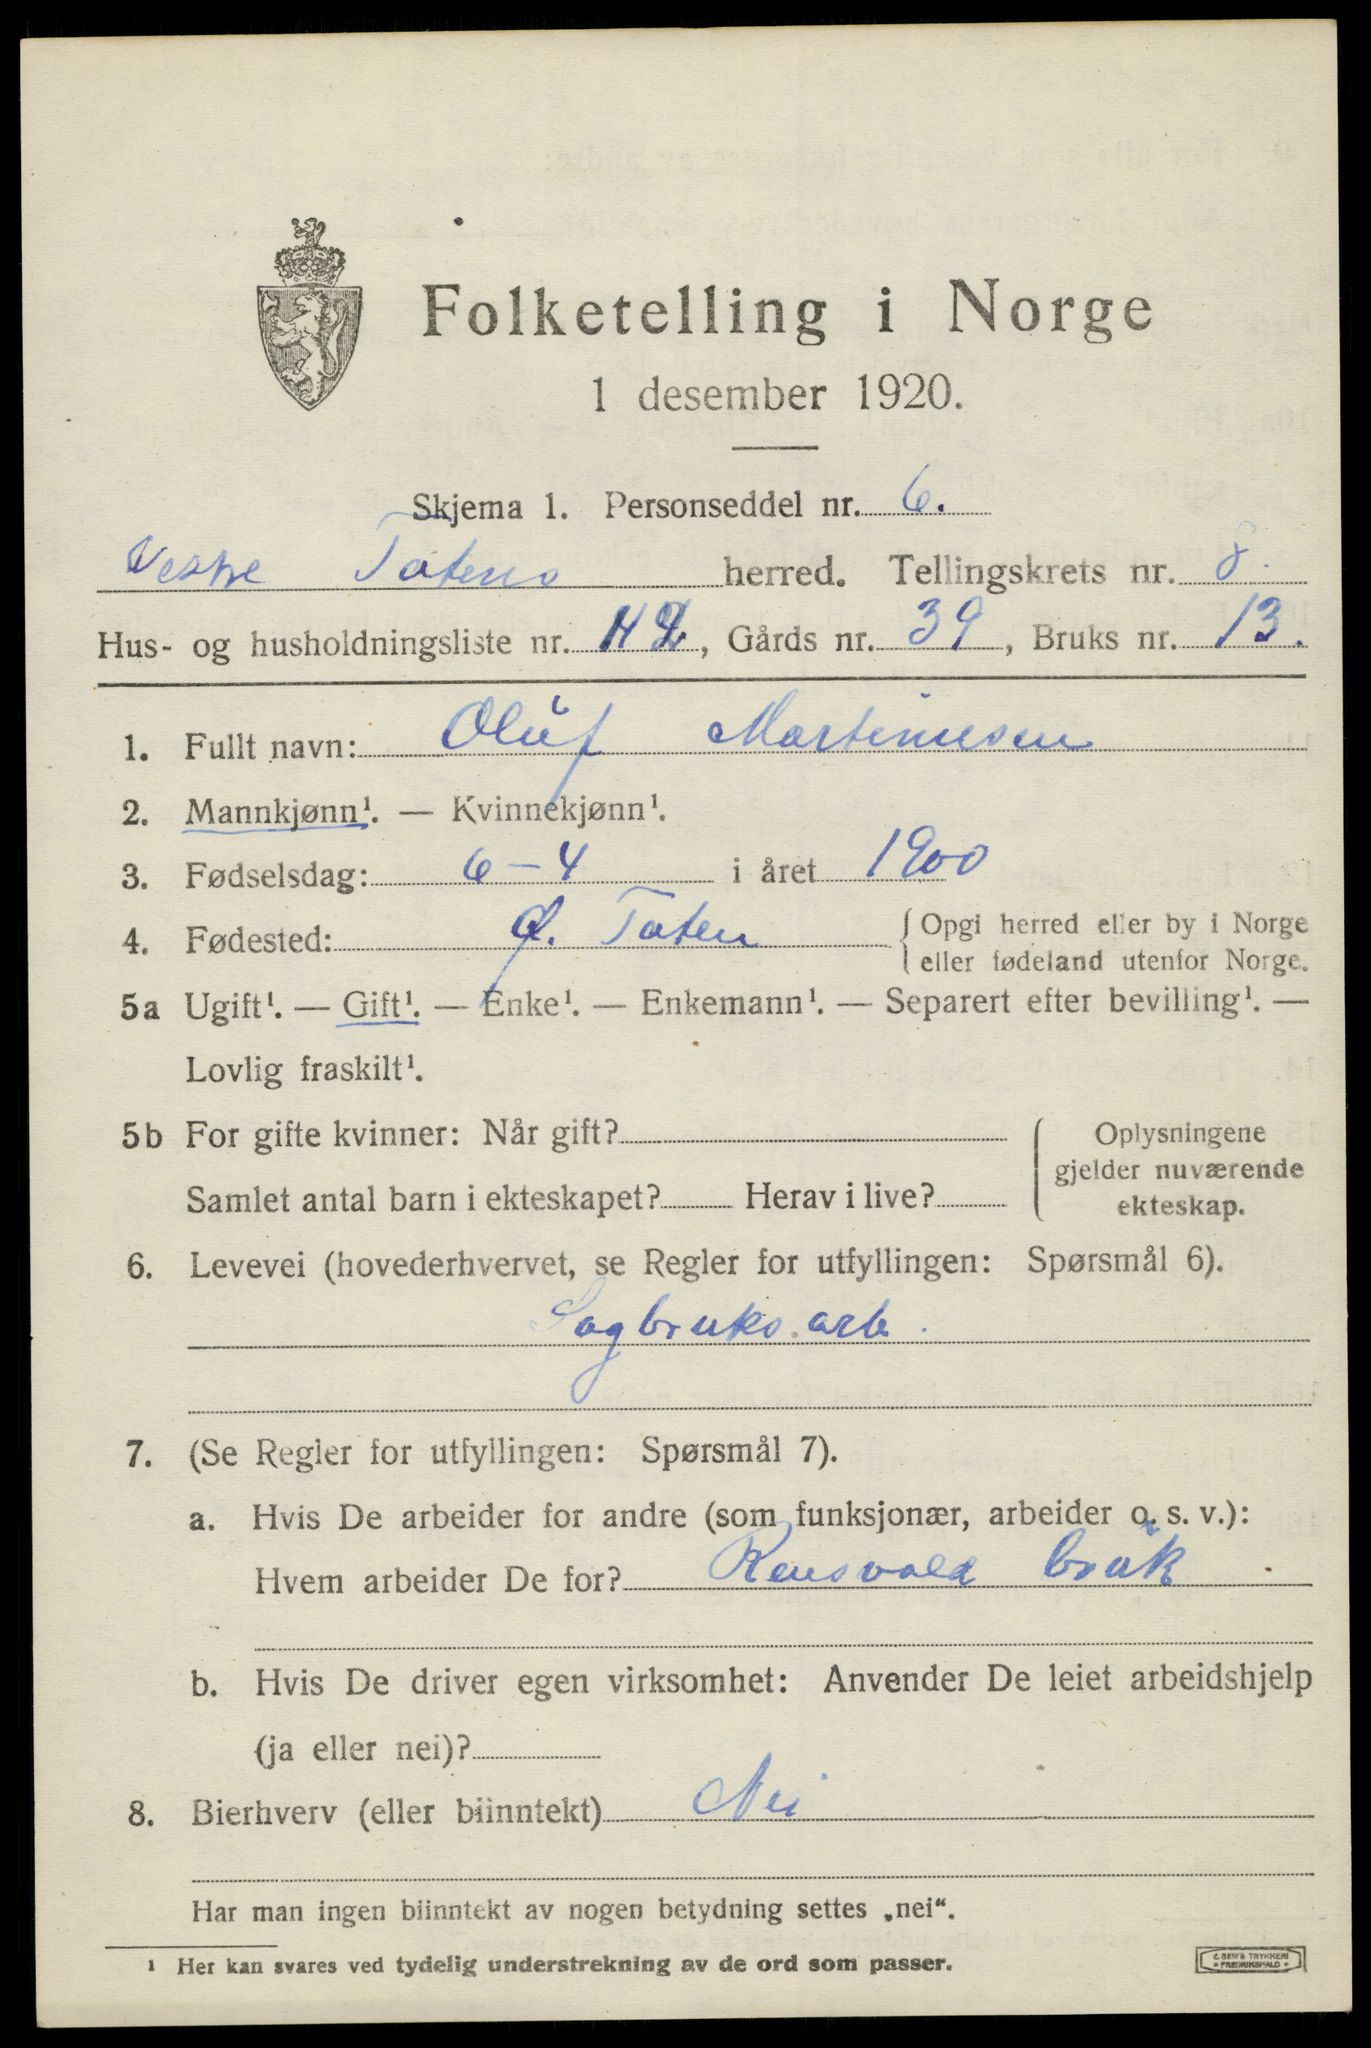 Folketelling i Norge
1 desember 1920.
Skjema 1. Personseddel nr. 6.
Vestre Totens herred. Tellingskrets nr. 8.
Hus- og husholdningsliste nr. 42, Gårds nr. 39, Bruks nr. 13.
1. Fullt navn: Oluf Martinusen
2. Mannkjønn¹. — Kvinnekjønn¹.
3. Fødselsdag: 6-4 i året 1900
4. Fødested: Ø. Toten { Opgi herred eller by i Norge
eller fødeland utenfor Norge.
5a Ugift¹. — Gift¹. — Enke¹. — Enkemann¹. — Separert efter bevilling¹. —
Lovlig fraskilt¹.
5b For gifte kvinner: Når gift? { Oplysningene
gjelder nuværende
Samlet antal barn i ekteskapet? Herav i live? ekteskap.
6. Levevei (hovederhvervet, se Regler for utfyllingen: Spørsmål 6).
Sagbruks arb.
7. (Se Regler for utfyllingen: Spørsmål 7).
a. Hvis De arbeider for andre (som funksjonær, arbeider o. s. v.):
Hvem arbeider De for? Reusvald bruk
b. Hvis De driver egen virksomhet: Anvender De leiet arbeidshjelp
(ja eller nei)?
8. Bierhverv (eller biinntekt) Nei
Har man ingen biinntekt av nogen betydning settes „nei“.
¹ Her kan svares ved tydelig understrekning av de ord som passer.
C. BEM'S TRYKKERI
FREDRIKSHALD